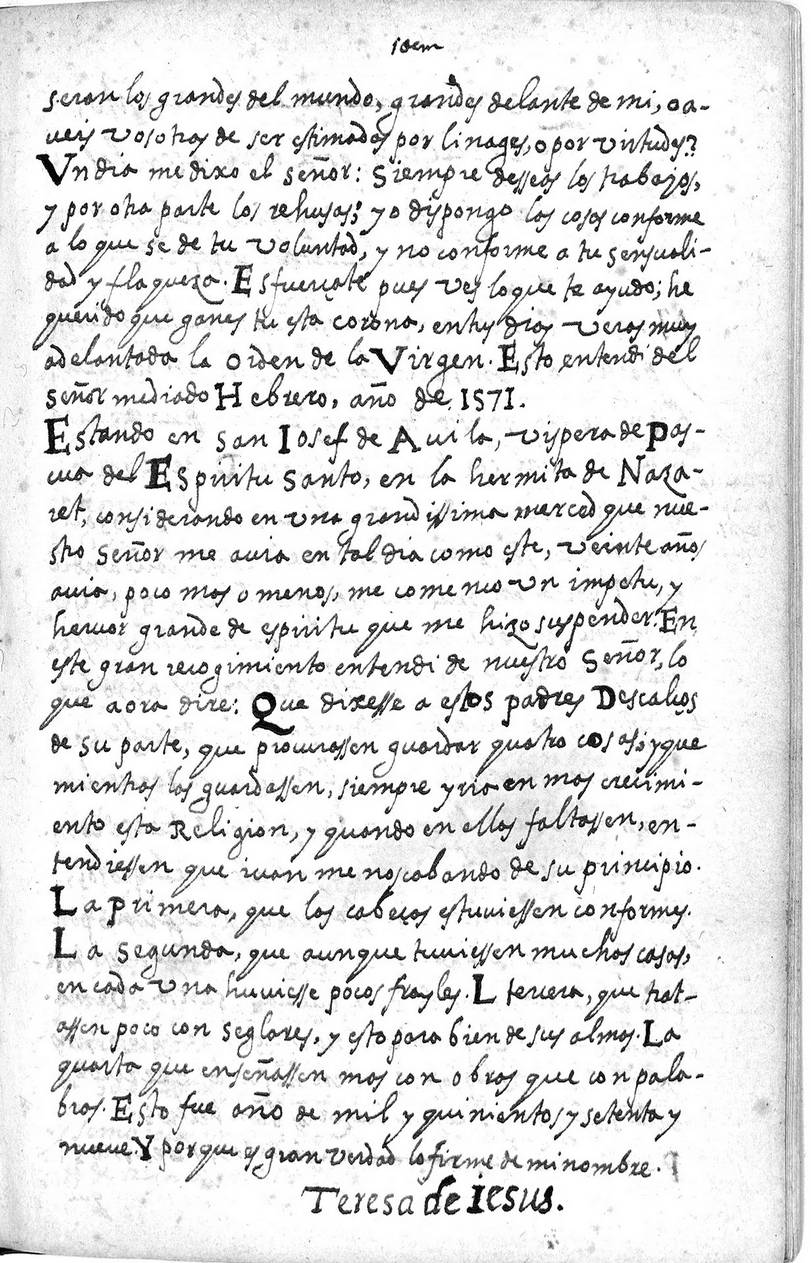 seran los grandes del mundo, grandes delante de mi, o a-
veis vosotras de ser estimadas por linages, o por virtudes?
Vn dia me dixo el señor: Siempre desseas los trabajos,
y por otra parte los rehusas; yo dispongo las cosas conforme
a lo que se de tu voluntad, y no conforme a tu sensuali-
dad y flaqueza. Esfuerçate pues ves lo que te ayudo; he
querido que ganes tu esta corona, en tus dias veras muy
adelantada la orden de la Virgen. Esto entendi del
señor mediado Hebrero, año de 1571.
Estando en san Iosef de Auila, vispera de Pas-
cua del Espiritu santo, en la hermita de Naza-
ret, considerando en vna grandissima merced que nue-
stro señor me auia en tal dia como este, veinte años
auia, poco mas o menos, me començo vn impetu, y
heruor grande de espiritu que me hizo suspender. En
este gran recogimiento entendi de nuestro Señor, lo
que aora dire: Que dixesse a estos padres Descalços
de su parte, que procurassen guardar quatro cosas; y que
mientras las guardassen, siempre yria en mas crecimi-
ento esta Religion, y quando en ellas faltassen, en-
tendiessen que iuan menoscabando de su principio.
La primera, que las cabeças estuuiessen conformes.
La segunda, que aunque tuuiessen muchas casas,
en cada vna huuiesse pocos frayles. L tercera, que trat-
assen poco con seglares, y esto para bien de sus almas. La
quarta que enseñassen mas con obras que con pala-
bras. Esto fue año de mil y quinientos y setenta y
nueue. Y porque es gran verdad lo firme de mi nombre.
Teresa de Iesus.